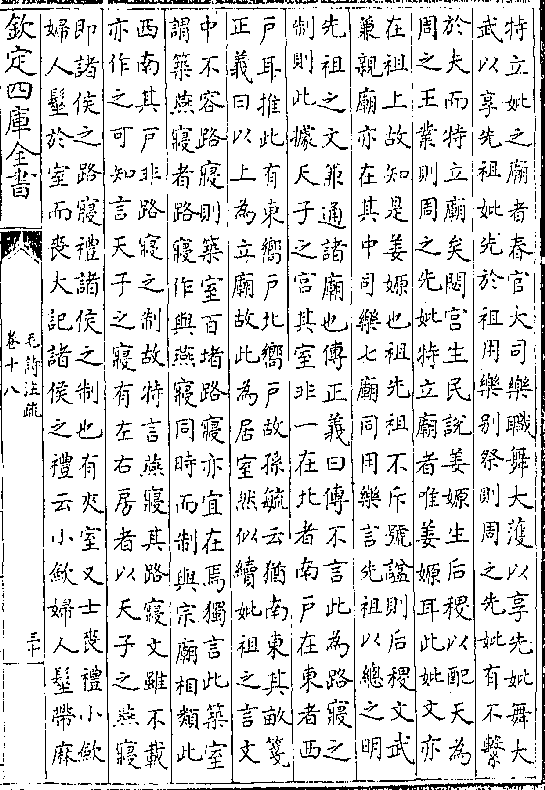 特立妣之廟者春官大司樂職舞大濩以享先妣舞大
武以享先祖妣先於祖用樂别祭則周之先妣有不繫
於夫而特立廟矣閟宫生民說姜嫄生后稷以配天為
周之王業則周之先妣特立廟者唯姜嫄耳此妣文亦
在祖上故知是姜嫄也祖先祖不斥號諡則后稷文武
兼親廟亦在其中司樂七廟同用樂言先祖以總之明
先祖之文兼通諸廟也傳正義曰傳不言此為路寢之
制則此據天子之宫其室非一在北者南戶在東者西
戶耳推此有東嚮戶北嚮戶故孫毓云猶南東其畝箋
正義曰以上為立廟故此為居室然似續妣祖之言文
中不容路寢則築室百堵路寢亦宜在焉獨言此築室
謂築燕寢者路寢作與燕寢同時而制與宗廟相類此
西南其戶非路寢之制故特言燕寢其路寢文雖不載
亦作之可知言天子之寢有左右房者以天子之燕寢
即諸侯之路寢禮諸侯之制也有夾室又士喪禮小斂
婦人髽於室而喪大記諸侯之禮云小斂婦人髽帶麻
欽定四庫全書
毛詩注疏
卷十八
三十